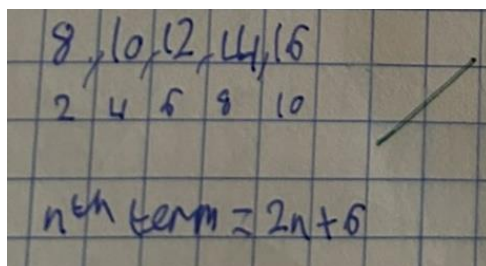 8, 10, 12, 14, 16
2 4 6 8 10
nth term = 2n + 6